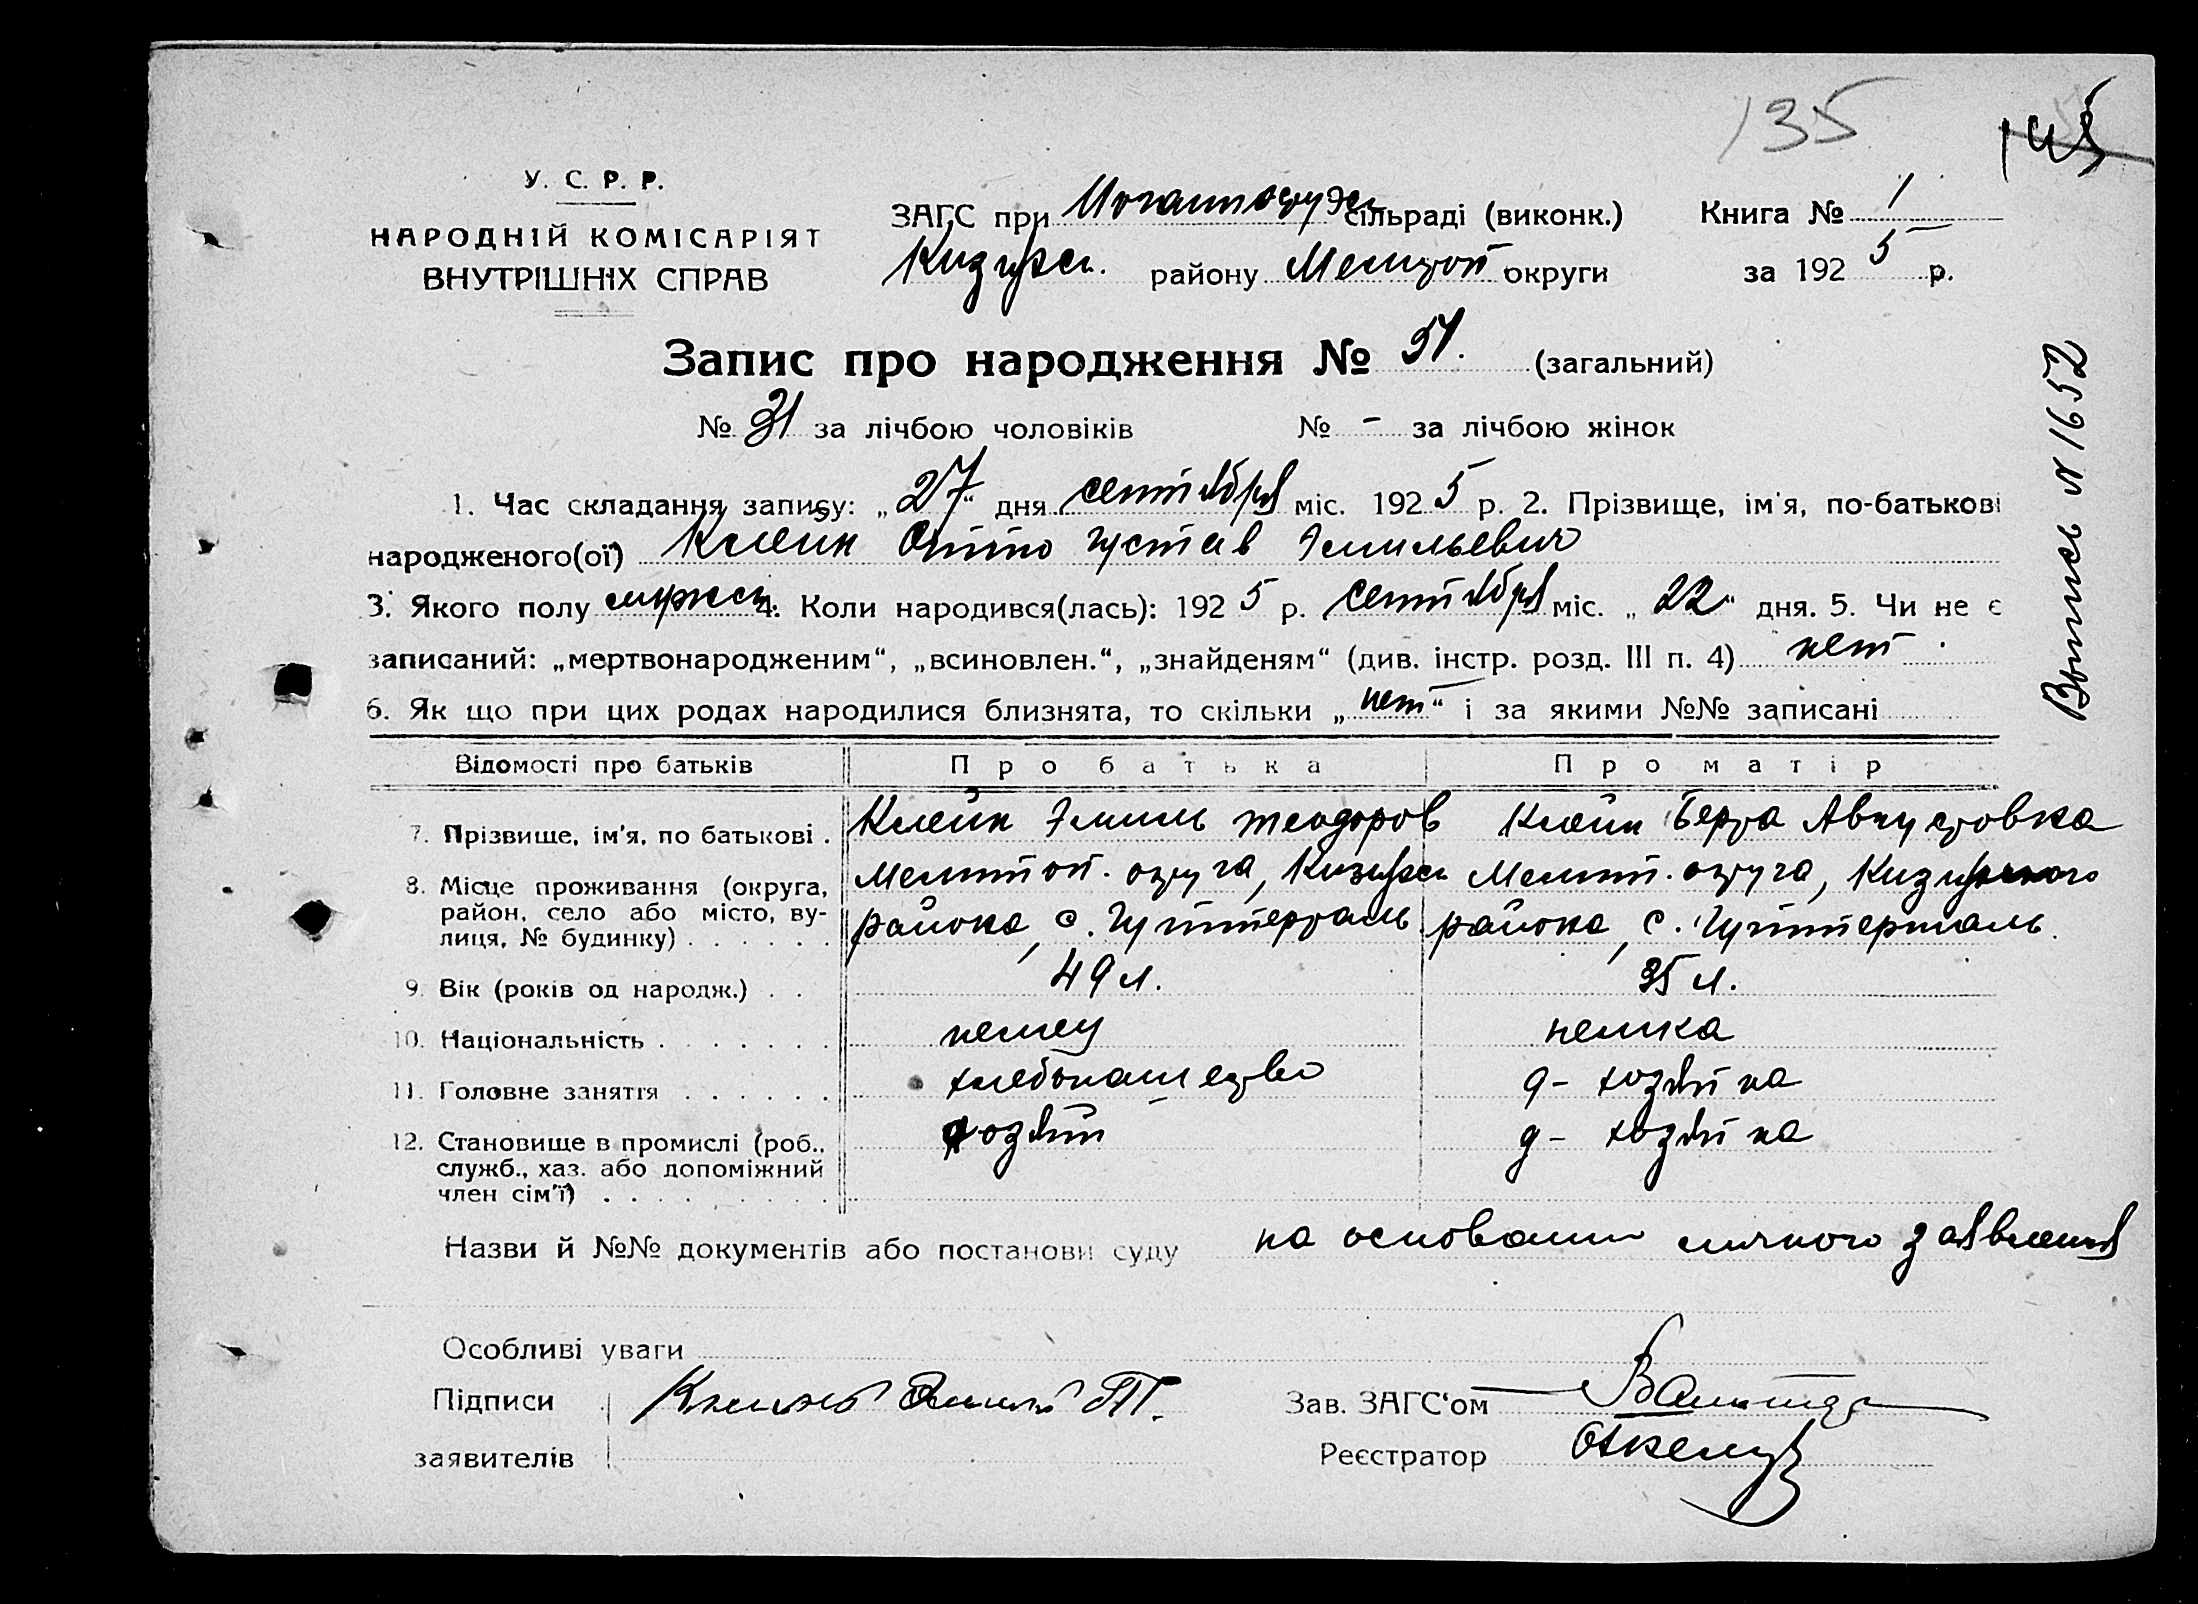 135
145
У. С. Р. Р.
НАРОДНІЙ КОМІСАРІЯТ
ВНУТРІШНІХ СПРАВ
ЗАГС при сільраді (виконк.) Книга № 1
району Мелитоп округи за 1925 р.
Запис про народження № 51. (загальний)
№ 31 за лічбою чоловіків № - за лічбою жінок
1. Час складання запису: „27" дня сентября міс. 1925 р. 2. Прізвище, ім'я, по-батькові
народженого(ої) Клейн Отто Густав Эмильевич
3. Якого полу мужск. 4. Коли народився(лась): 1925 р. сентября міс. „22" дня. 5. Чи не є
записаний: „мертвонародженим", „всиновлен.", „знайденям" (див. інстр. розд. III п. 4) нет
6. Як що при цих родах народилися близнята, то скільки „нет" і за якими №№ записані
Выпись № 1652
Відомості про батьків Про батька Про матір
7. Прізвище, ім'я, по батькові . Клейн Эмиль Теодоров Клейн Берта Августовна
8. Місце проживання (округа, Мелитоп. округа, Мелит. округа,
район, село або місто, ву- района, с. Гуттерталь района, с. Гуттерталь.
лиця, № будинку) . . . . . .
9. Вік (років од народж.) . . 49 л. 35 л.
10. Національність . . . . . . . немец немка
11. Головне заняття . . . . . . хлебопашество д-хозяйка
12. Становище в промислі (роб., хозяин д-хозяйка
служб., хаз. або допоміжний
член сім'ї) . . . . . . . . .
Назви й №№ документів або постанови суду на основании личного заявления
Особливі уваги
Підписи Зав. ЗАГС'ом
заявителів Реєстратор